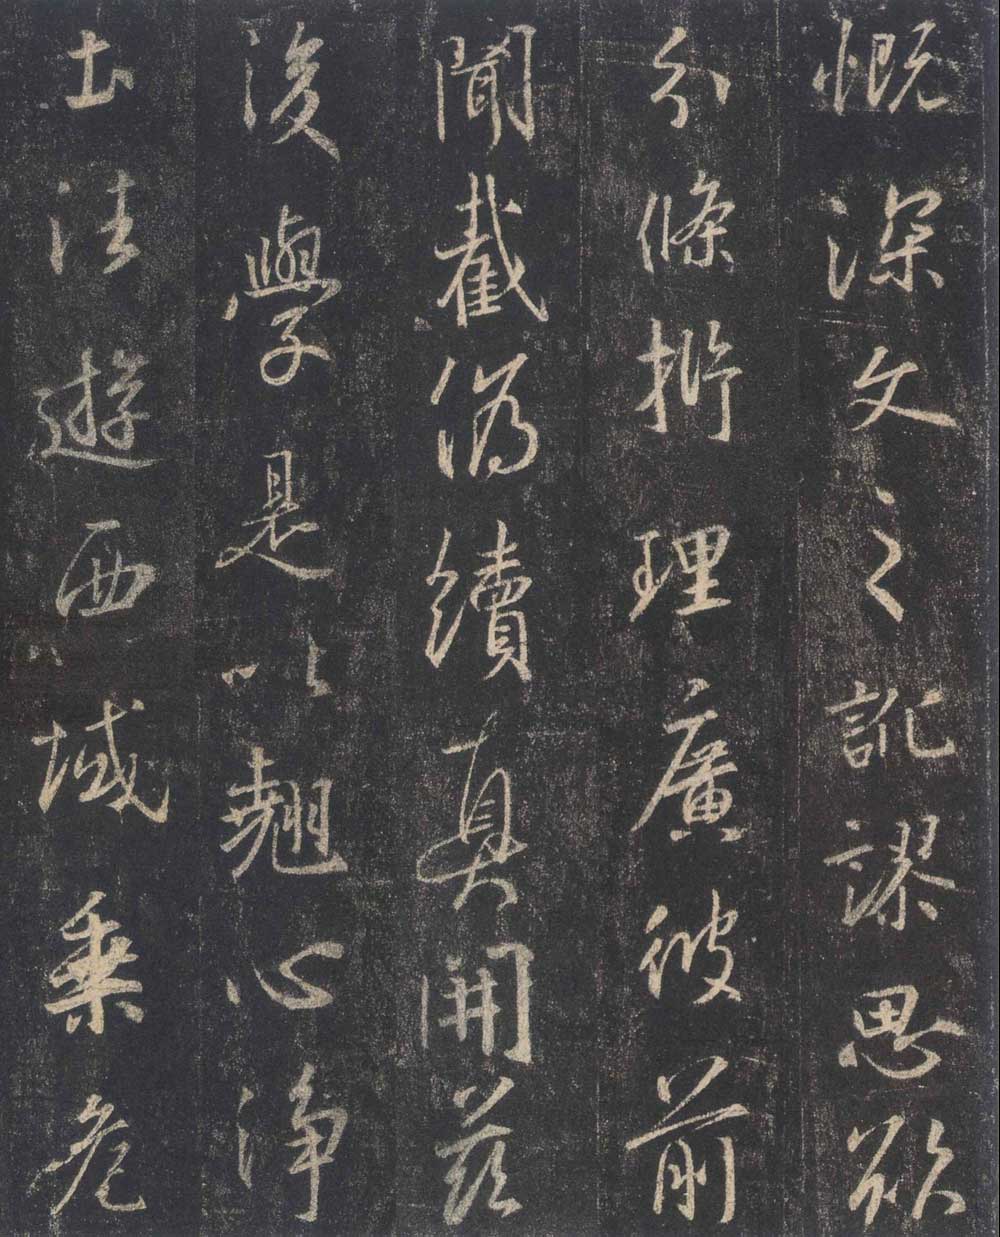 慨深文之訛謬思欲
分條析理廣彼前
聞截偽續真開茲
後學是以翹心淨
土法遊西域乘危